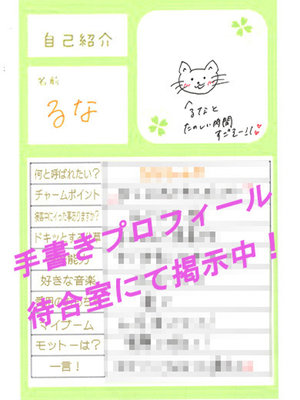 自己紹介
名前
るな
るなと
たのしい時間
すごそー!!
何と呼ばれたい?
チャームポイント
ドキッとする
能力
好きな音楽
マイブーム
モットーは?
一言!
手書きプロフィール
待合室にて掲示中!